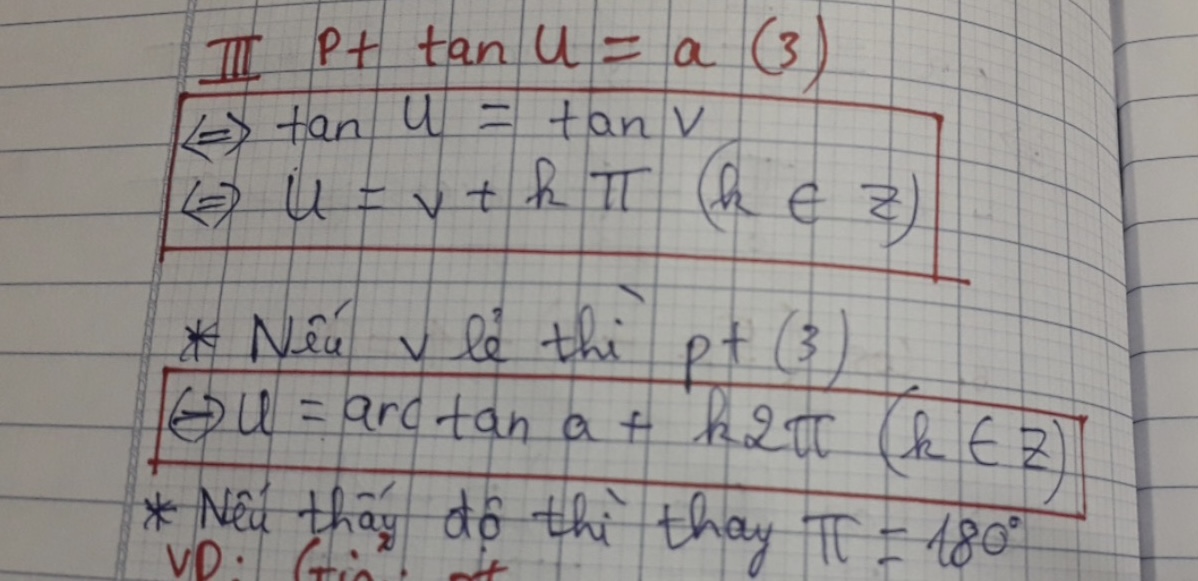 III pt tan u = a (3)
⇔ tan u = tan v
⇔ u = v + kπ (k ∈ Z)
* Nếu v lẻ thì pt (3)
⇔ u = arc tan a + k2π (k ∈ Z)
* Nếu thấy độ thì thay π = 180°
VD: Giải pt